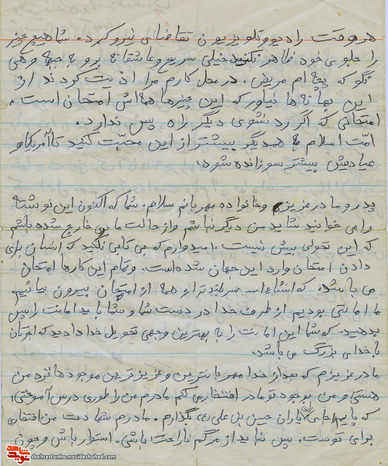 هر وقت رادیو و تلویزیون تقاضای نیرو کرد. شما هیچ چیز
را جلوی خود ظاهر نکنید خیلی سریع و عاشقانه برو به جبهه و هی
نگو که بچه ام مریض. در محل کارم مرا اذیت کردند از
این بهانه ها نیاور که این چیزها همه اش امتحان است.
امتحانی که اگر رد شوی دیگر راه پس ندارد.
امت اسلام به همدیگر بیشتر از این محبت کنید تا آمریکا و
عمالش بیشتر سوزانده شود.
پدر و مادر عزیزم و خانواده مهربانم سلام. شما که اکنون این نوشته
را می خوانید شاید من دیگر نباشم و از حالت مادی خارج شده باشم
که این تحولی بیش نیست. امیدوارم که بی تابی نکنید که انسان برای
دادن امتحان وارد این جهان شده است. و تمام این کارها امتحان
می باشد. که انشاءالله سربلند تر از همه از امتحان بیرون بیائیم
ما امانتی بودیم از طرف خدا در دست شما و شما باید امانت را پس
بدهید. که شما این امانت را به بهترین وجهی تحویل خدا دادید که اجرتان
با خدای بزرگ می باشد.
مادر عزیزم که بعد از خدا مهربانترین و عزیزترین موجود نزد من
هستی و من بوجود تو مادر افتخار می کنم مادرم من را طوری درس آموختی
که پا بپای یاران حسین بن علی می گذارم. مادرم شهادت من افتخاری
برای توست. پس نباید از مرگم ناراحت باشی. استوار باش و چون